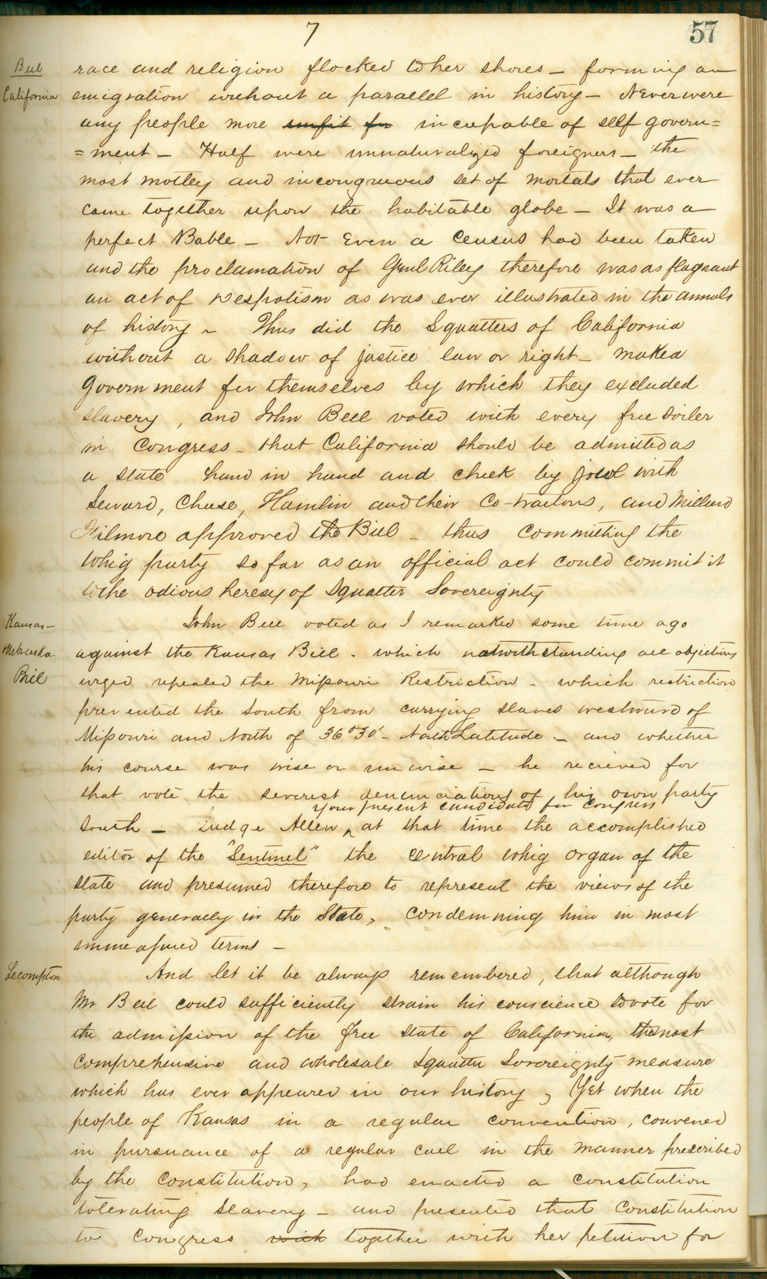 7
57
Bell
California
race and religion flocked to her shores — forming an
emigration without a paralell in history — Never were
any people more unfit for incapable of self govern=
=ment — Half were unnaturalized foreigners — the
most motley and incongruous set of mortals that ever
came together upon the habitable globe — It was a
perfect Bable — Not Even a census had been taken
and the proclamation of Genl Riley therefore was as flagrant
an act of despotism as was ever illustrated in the annals
of history — Thus did the Squatters of California
without a shadow of justice law or right — make a
government for themselves by which they excluded
slavery, and John Bell voted with every free soiler
in Congress — that California should be admitted as
a state hand in hand and cheek by jowl with
Seward, Chase, Hamlin and their Co-traitors, and Millard
Filmore approved the Bill — thus committing the
Whig party so far as an official act could commit it
to the odious heresy of Squatter Sovereignty
Kansas —
Nebraska
Bill
John Bell voted as I remarked some time ago
against the Kansas Bill — which notwithstanding all objections
urged repealed the Missouri Restriction — which restriction
prevented the South from carrying slaves westward of
Missouri and North of 36°30' — North Latitude — and whether
his course was wise or unwise — he recieved for
that vote the severest denunciations of his own party
South — Judge Allen ^ your present candidate for Congress at that time the accomplished
editor of the "Sentinel" the central whig organ of the
State and presumed therefore to represent the views of the
party generally in the State, condemning him in most
unmeasured terms —
Lecompton
And let it be always remembered, that although
Mr Bell could sufficiently strain his conscience to vote for
the admission of the free state of California, the most
comprehensive and wholesale Squatter Sovereignty measure
which has ever appeared in our history, Yet when the
people of Kansas in a regular convention, convened
in pursuance of a regular call in the manner prescribed
by the constitution, had enacted a constitution
tolerating slavery — and presented that Constitution
to Congress with together with her petition for